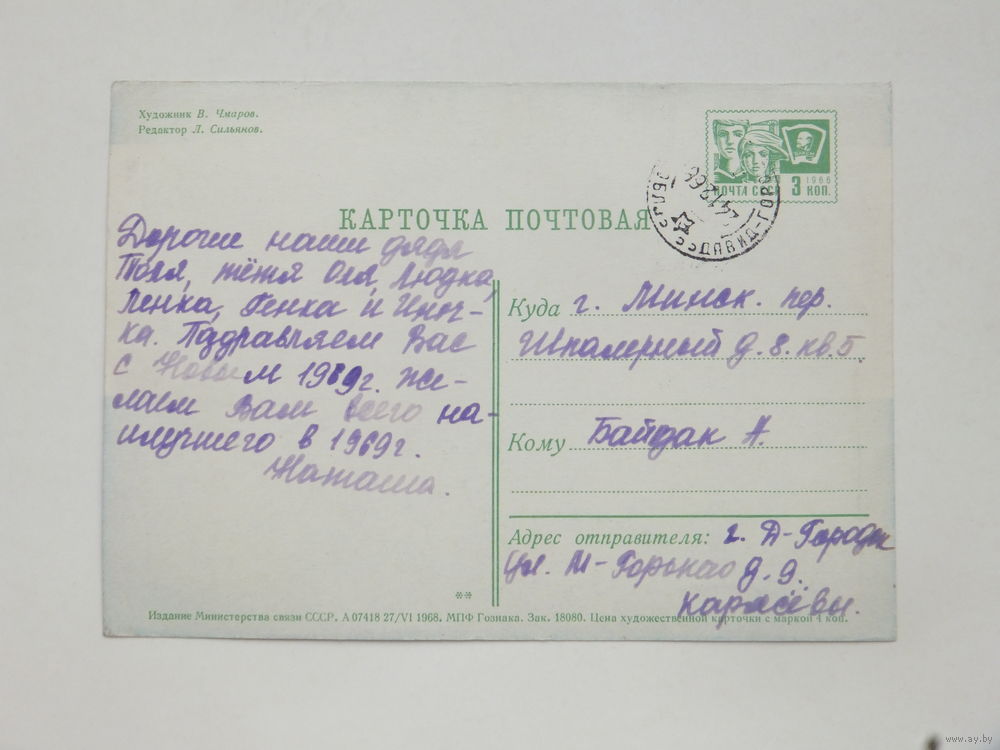 Художник В. Чмаров.
Редактор Л. Сильянов.
ПОЧТА СССР
1966
3 КОП.
ДАВИД-ГОРОД
КАРТОЧКА ПОЧТОВАЯ
Дорогие наши дядя
Толя, тётя Оля, Людка,
Ленка, Генка и Иноч-
ка. Поздравляем Вас
с Новым 1969г. Же-
лаем Вам всего на-
илучшего в 1969г.
Наташа.
Куда г. Минск. пер.
Шпалерный д.8. кв.5.
Кому Байдак А.
Адрес отправителя: г. Д-Городок
ул. М-Горького д. 9.
Карасёвы.
**
Издание Министерства связи СССР. А 07418 27/VI 1968. МПФ Гознака. Зак. 18080. Цена художественной карточки с маркой 4 коп.
www.ay.by